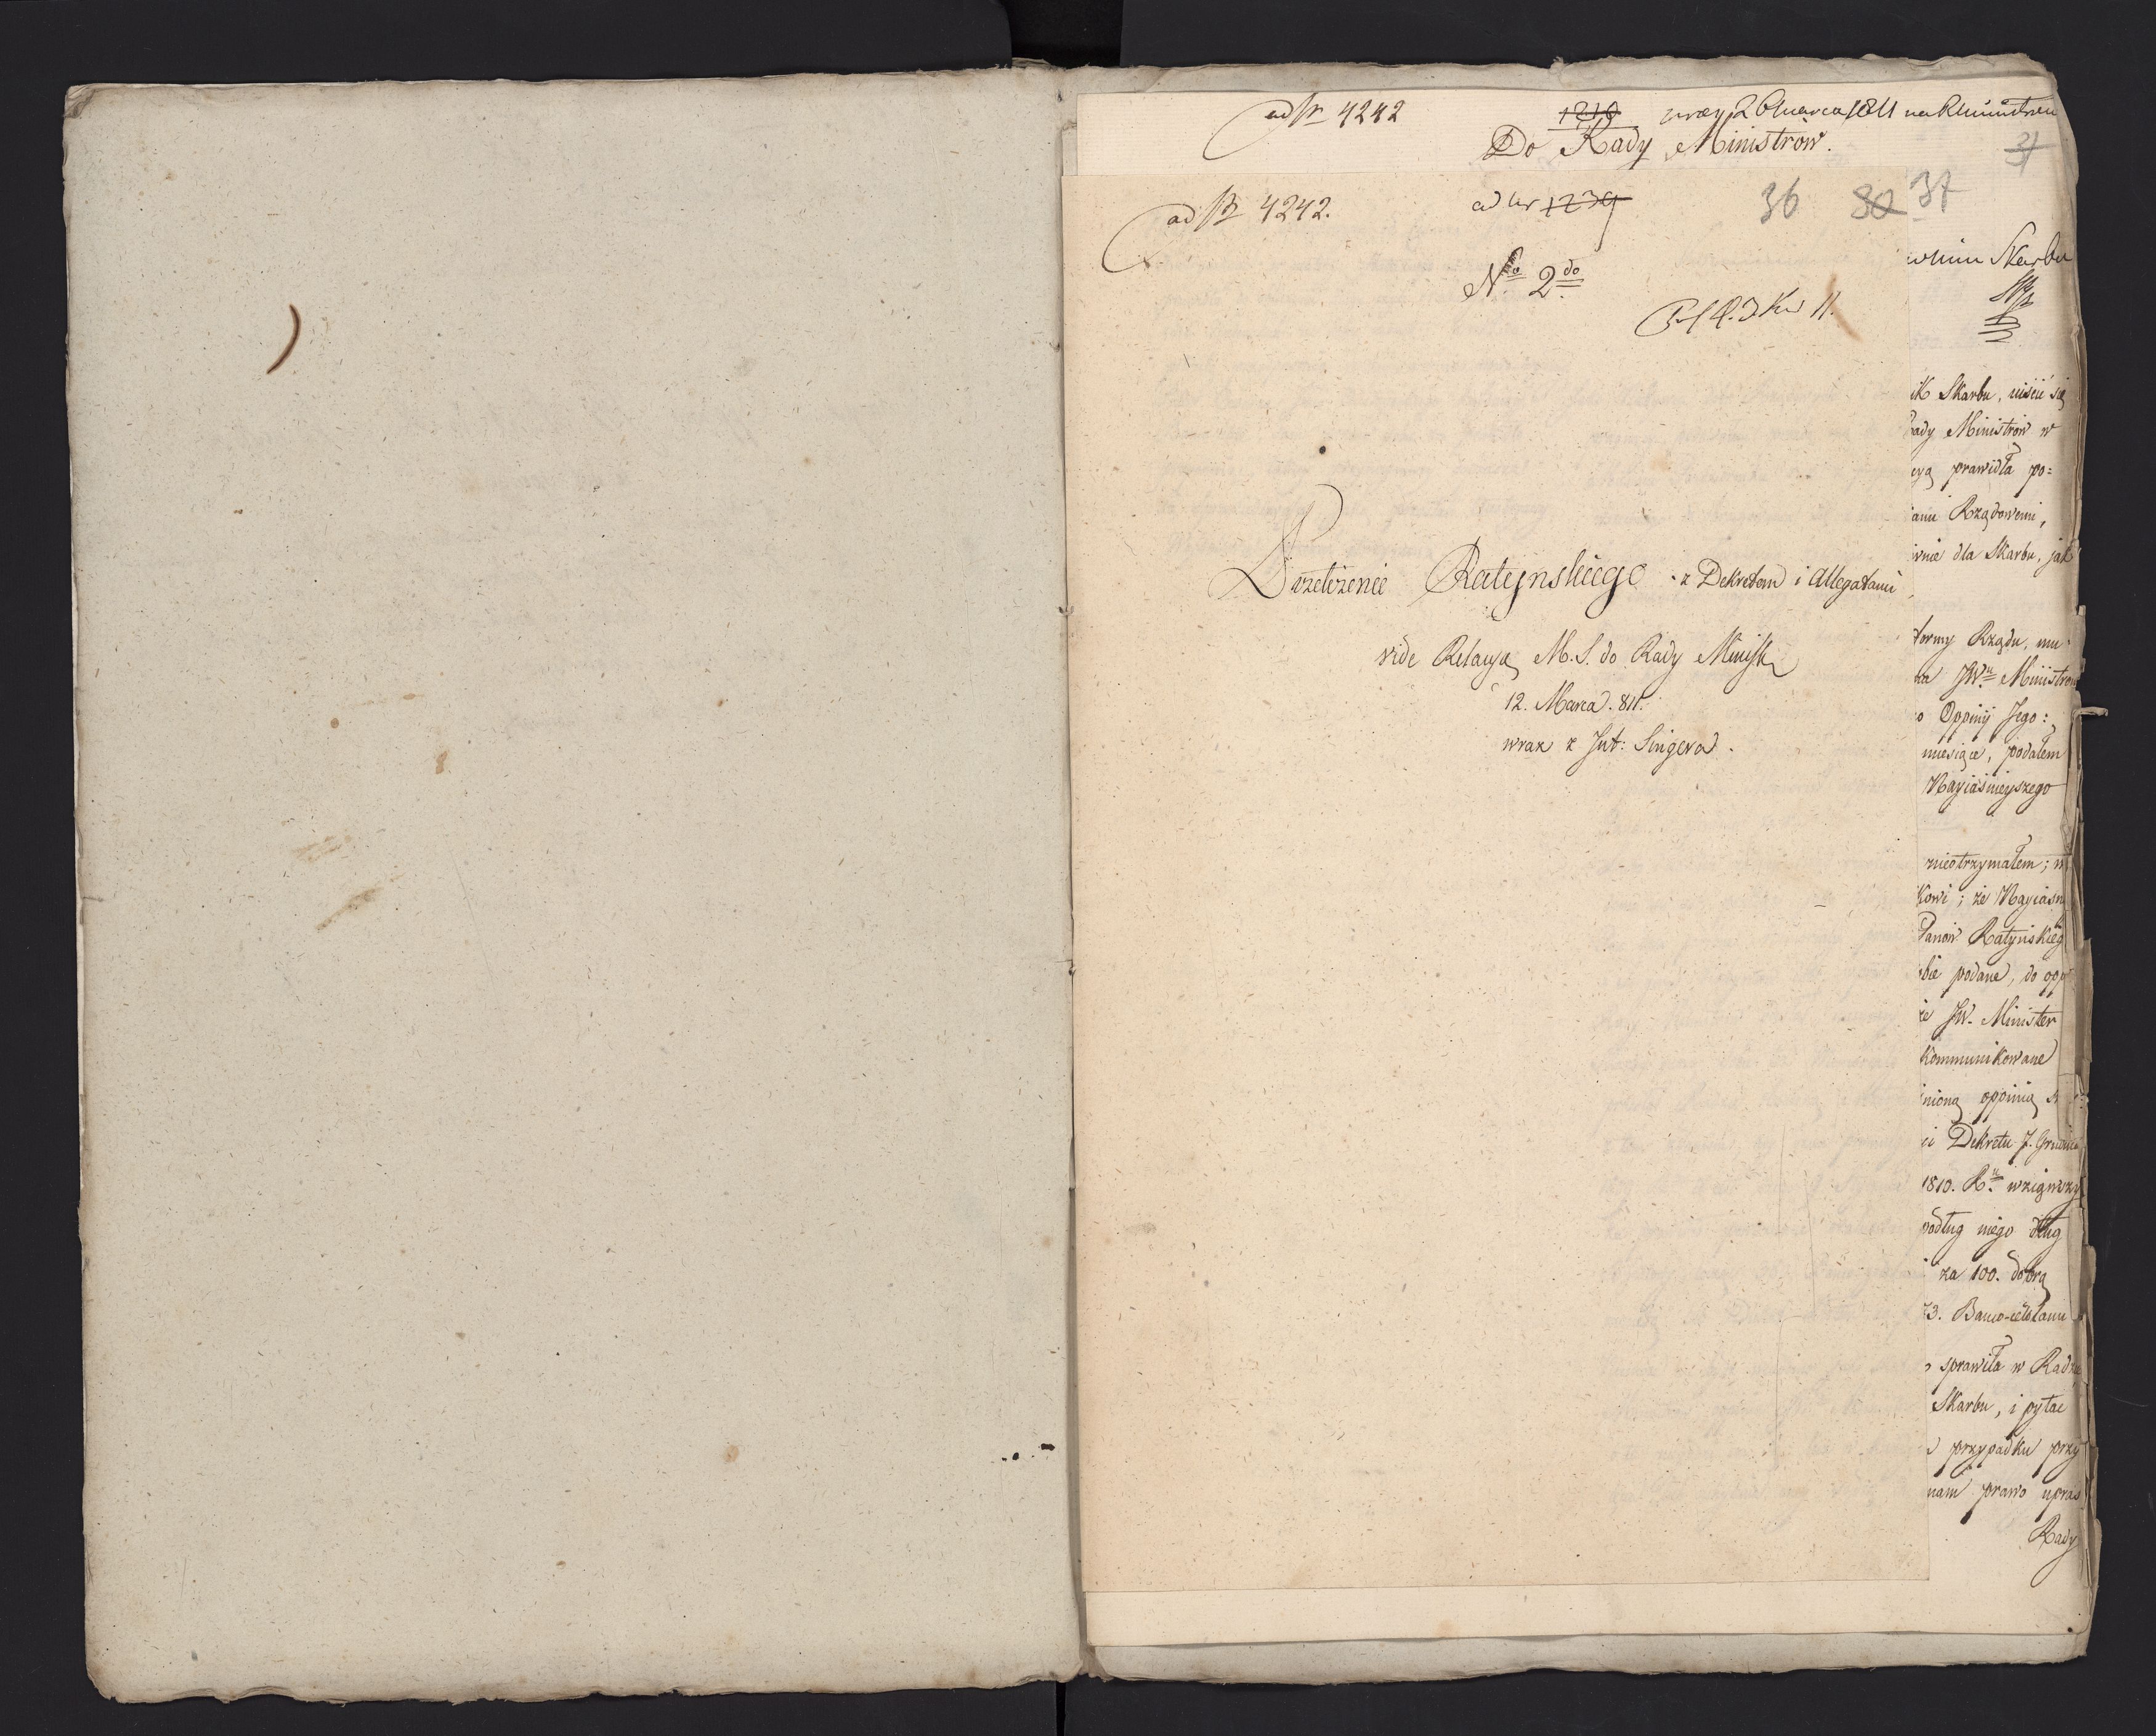 ad Nr 4242 1210 26 Marca 1811
Do Rady Ministrów.
31
ad Nr 4242. ad Nr 1239 36 80 37
No 2do
11.
Przełożenie Ratynskiego z Dekretem i Allegatami
vide Relacyą M. S. do Rady Minist
12. Marca. 811.
wraz z Int: Singera.
Skarbu
ik Skarbu, uiścić się
Rady Ministrow w
prawidła po=
Rządowemi,
dla Skarbu, jak
formy Rządu, mu
JWu Ministrowi
o Oppinij Jego:
miesiące, podałem
Nayiaśnieyszego
nieotrzymałem; w
kowi; że Nayiaśn
Panow Ratyńskieg
bie podane, do opp
że JW. Minister
Kommunikowane
nioną oppinią
ci Dekretu J. Grudnia
1810. Ru wziąwszy
podług niego dług
za 100. dobrą
3. Banco-
sprawiła w Radzie
Skarbu, i pytac
przypadku przy
nam prawo upras
Rady